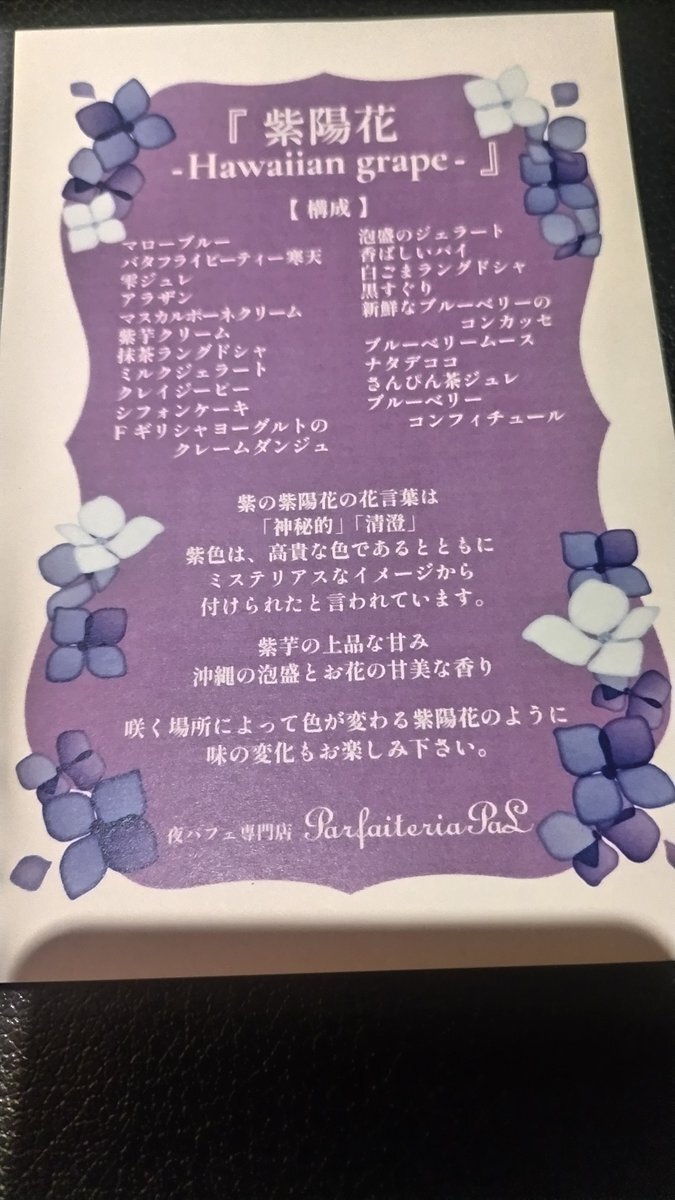 『 紫陽花
-Hawaiian grape- 』
【 構成 】
マローブルー
バタフライピーティー寒天
雫ジュレ
アラザン
マスカルポーネクリーム
紫芋クリーム
抹茶ラングドシャ
ミルクジェラート
クレイジーピー
シフォンケーキ
F ギリシャヨーグルトの
クレームダンジュ
泡盛のジェラート
香ばしいパイ
白ごまラングドシャ
黒すぐり
新鮮なブルーベリーの
コンカッセ
ブルーベリームース
ナタデココ
さんぴん茶ジュレ
ブルーベリー
コンフィチュール
紫の紫陽花の花言葉は
「神秘的」「清澄」
紫色は、高貴な色であるとともに
ミステリアスなイメージから
付けられたと言われています。
紫芋の上品な甘み
沖縄の泡盛とお花の甘美な香り
咲く場所によって色が変わる紫陽花のように
味の変化もお楽しみ下さい。
夜パフェ専門店 Parfaiteria PaL